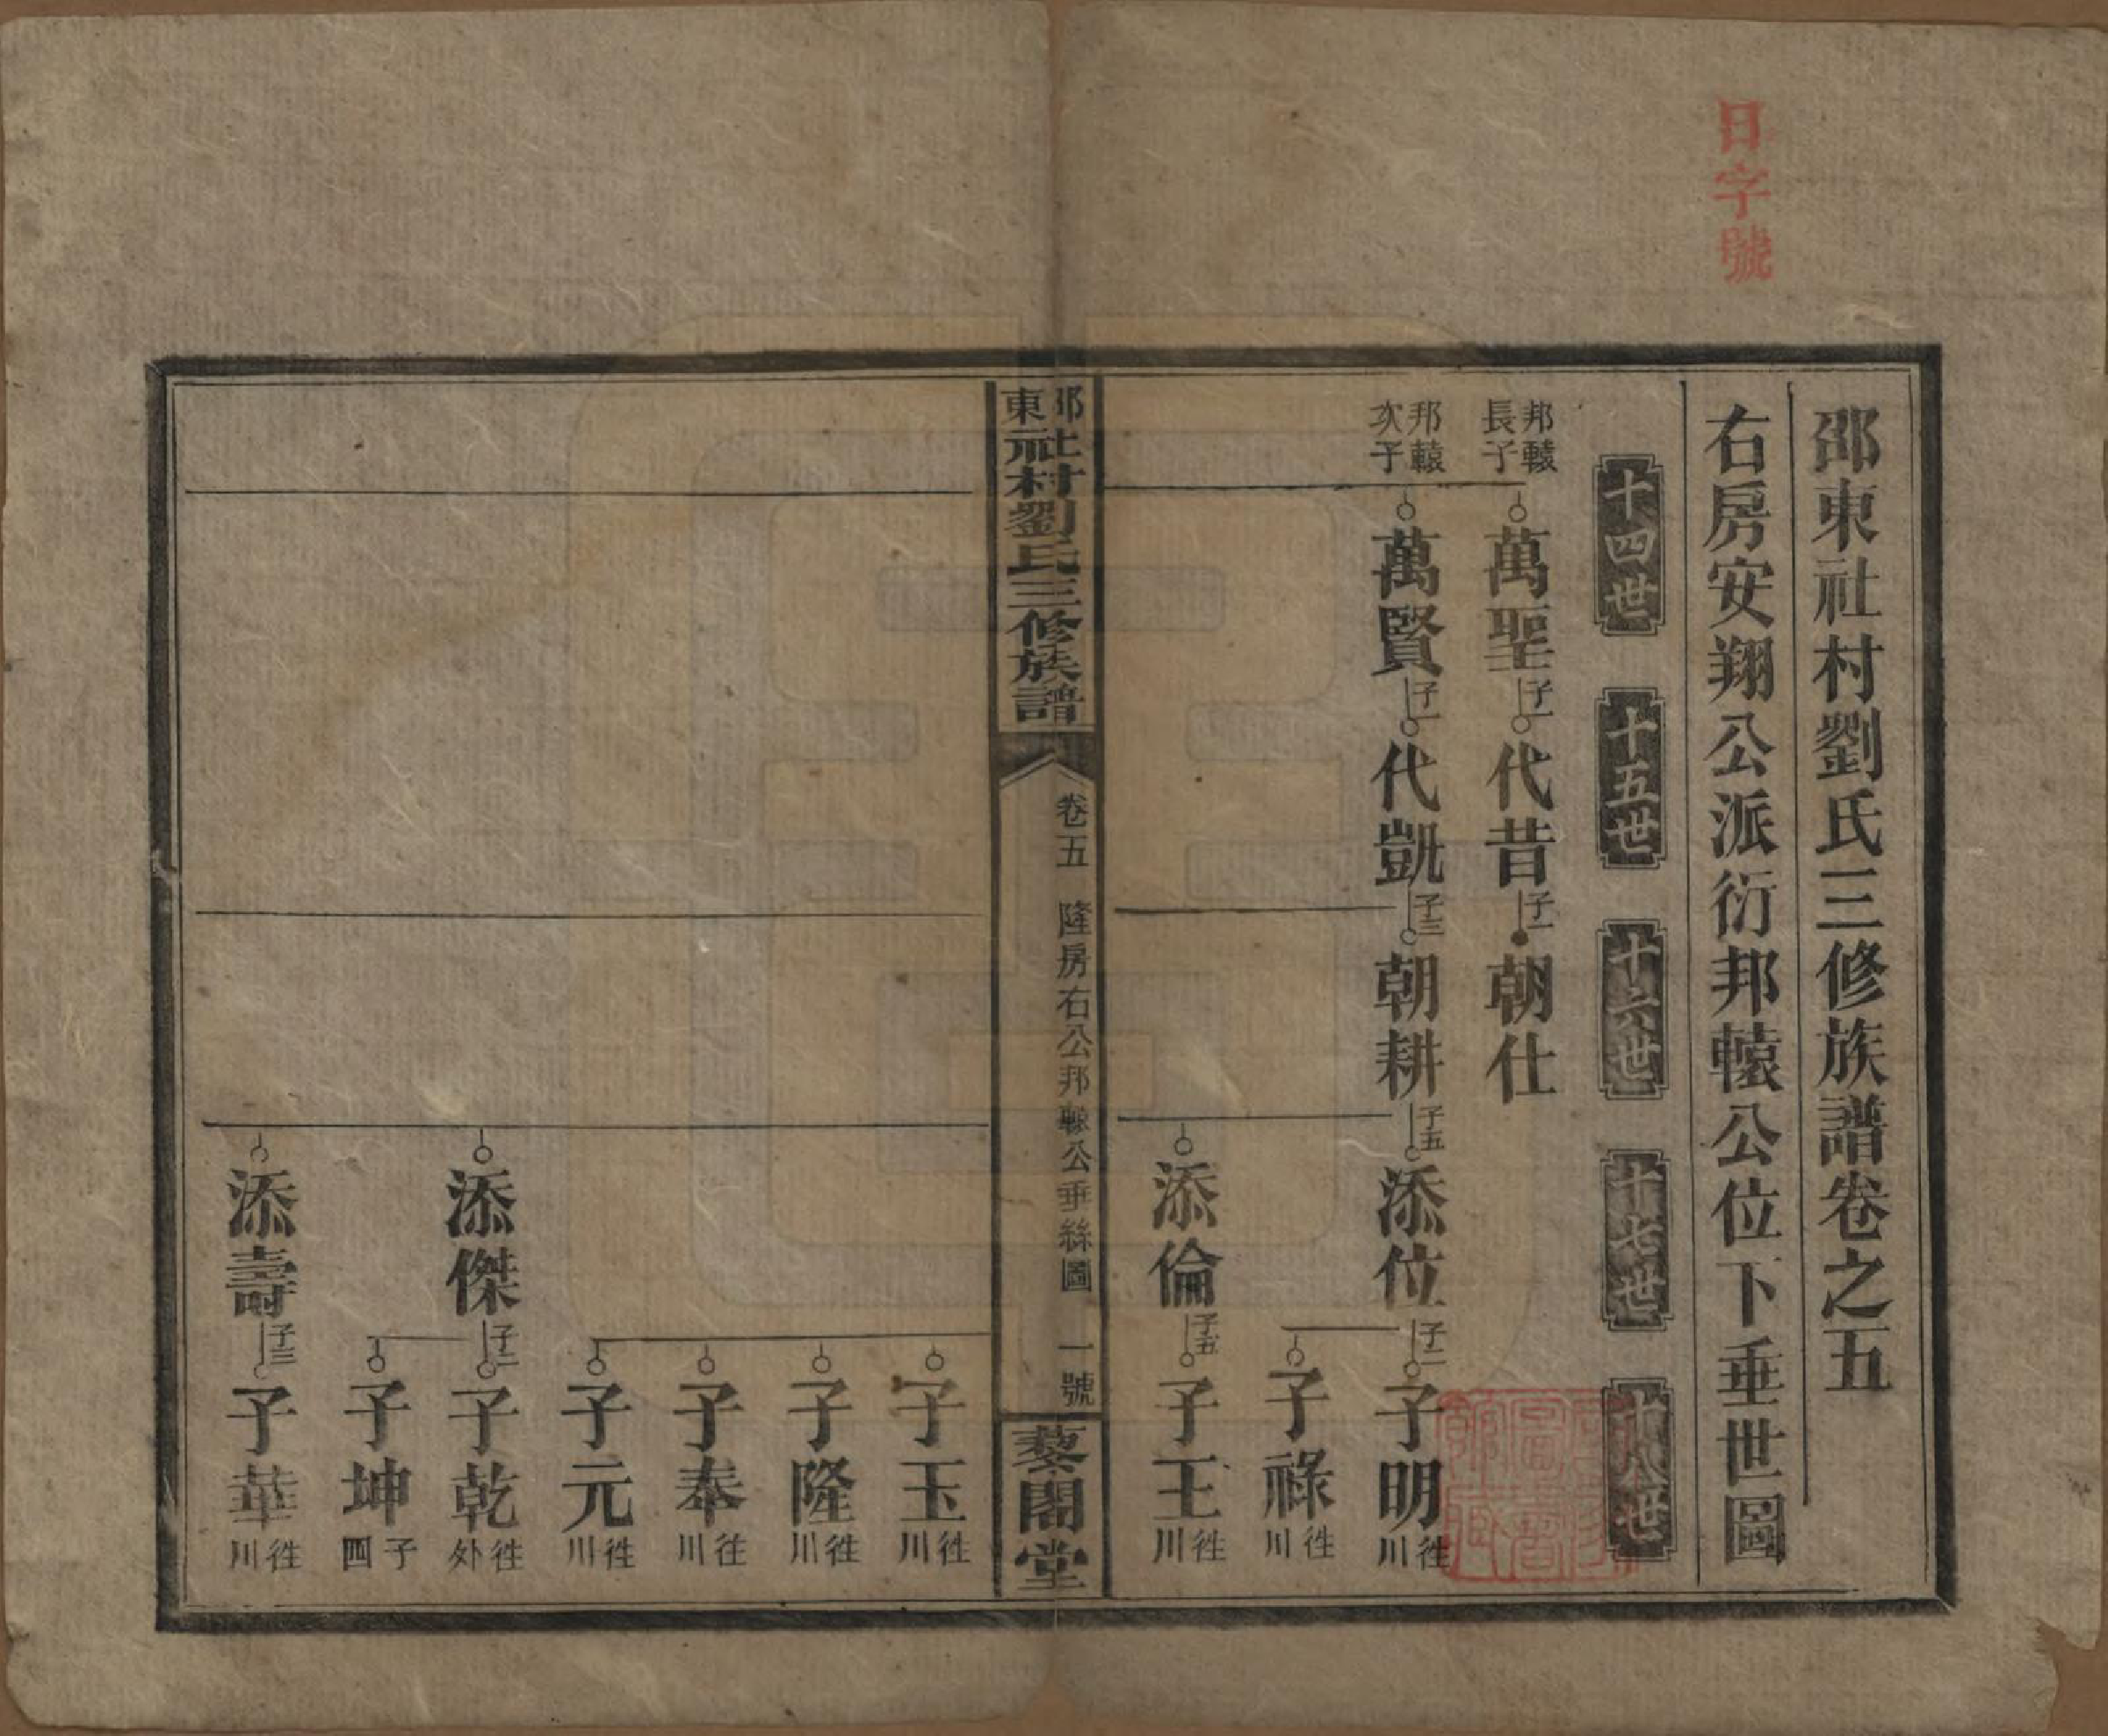 日字號
邵東社村劉氏三修族譜卷之五
右房安翔公派衍邦轅公位下垂世圖
十四世
十五世
十六世
十七世
十八世
邦轅長子
萬聖
子一
代昔
子一
朝仕
邦轅次子
萬賢
子一
代凱
子三
朝耕
子五
添位
子二
子明
徃川
子祿
徃川
添倫
子五
子王
徃川
邵東社村劉氏三修族譜
卷五
隆房右公邦轅公垂絲圖
一號
藜閣堂
子玉
徃川
子隆
徃川
子奉
徃川
子元
徃川
添傑
子二
子乾
徃外
子坤
子四
添壽
子三
子華
徃川